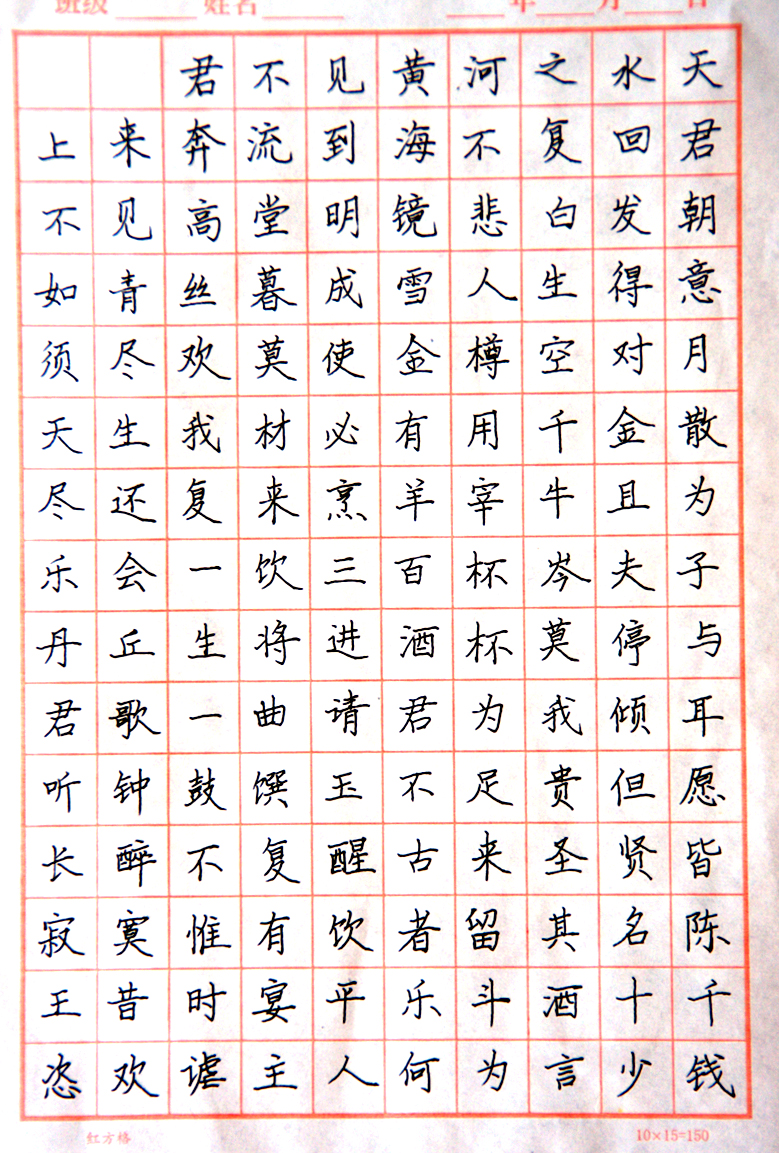 班级 姓名 年 月 日
君不见黄河之水天
上来奔流到海不复回君
不见高堂明镜悲白发朝
如青丝暮成雪人生得意
须尽欢莫使金樽空对月
天生我材必有用千金散
尽还复来烹羊宰牛且为
乐会一饮三百杯岑夫子
丹丘生将进酒杯莫停与
君歌一曲请君为我倾耳
听钟鼓馔玉不足贵但愿
长醉不复醒古来圣贤皆
寂寞惟有饮者留其名陈
王昔时宴平乐斗酒十千
恣欢谑主人何为言少钱
10×15=150